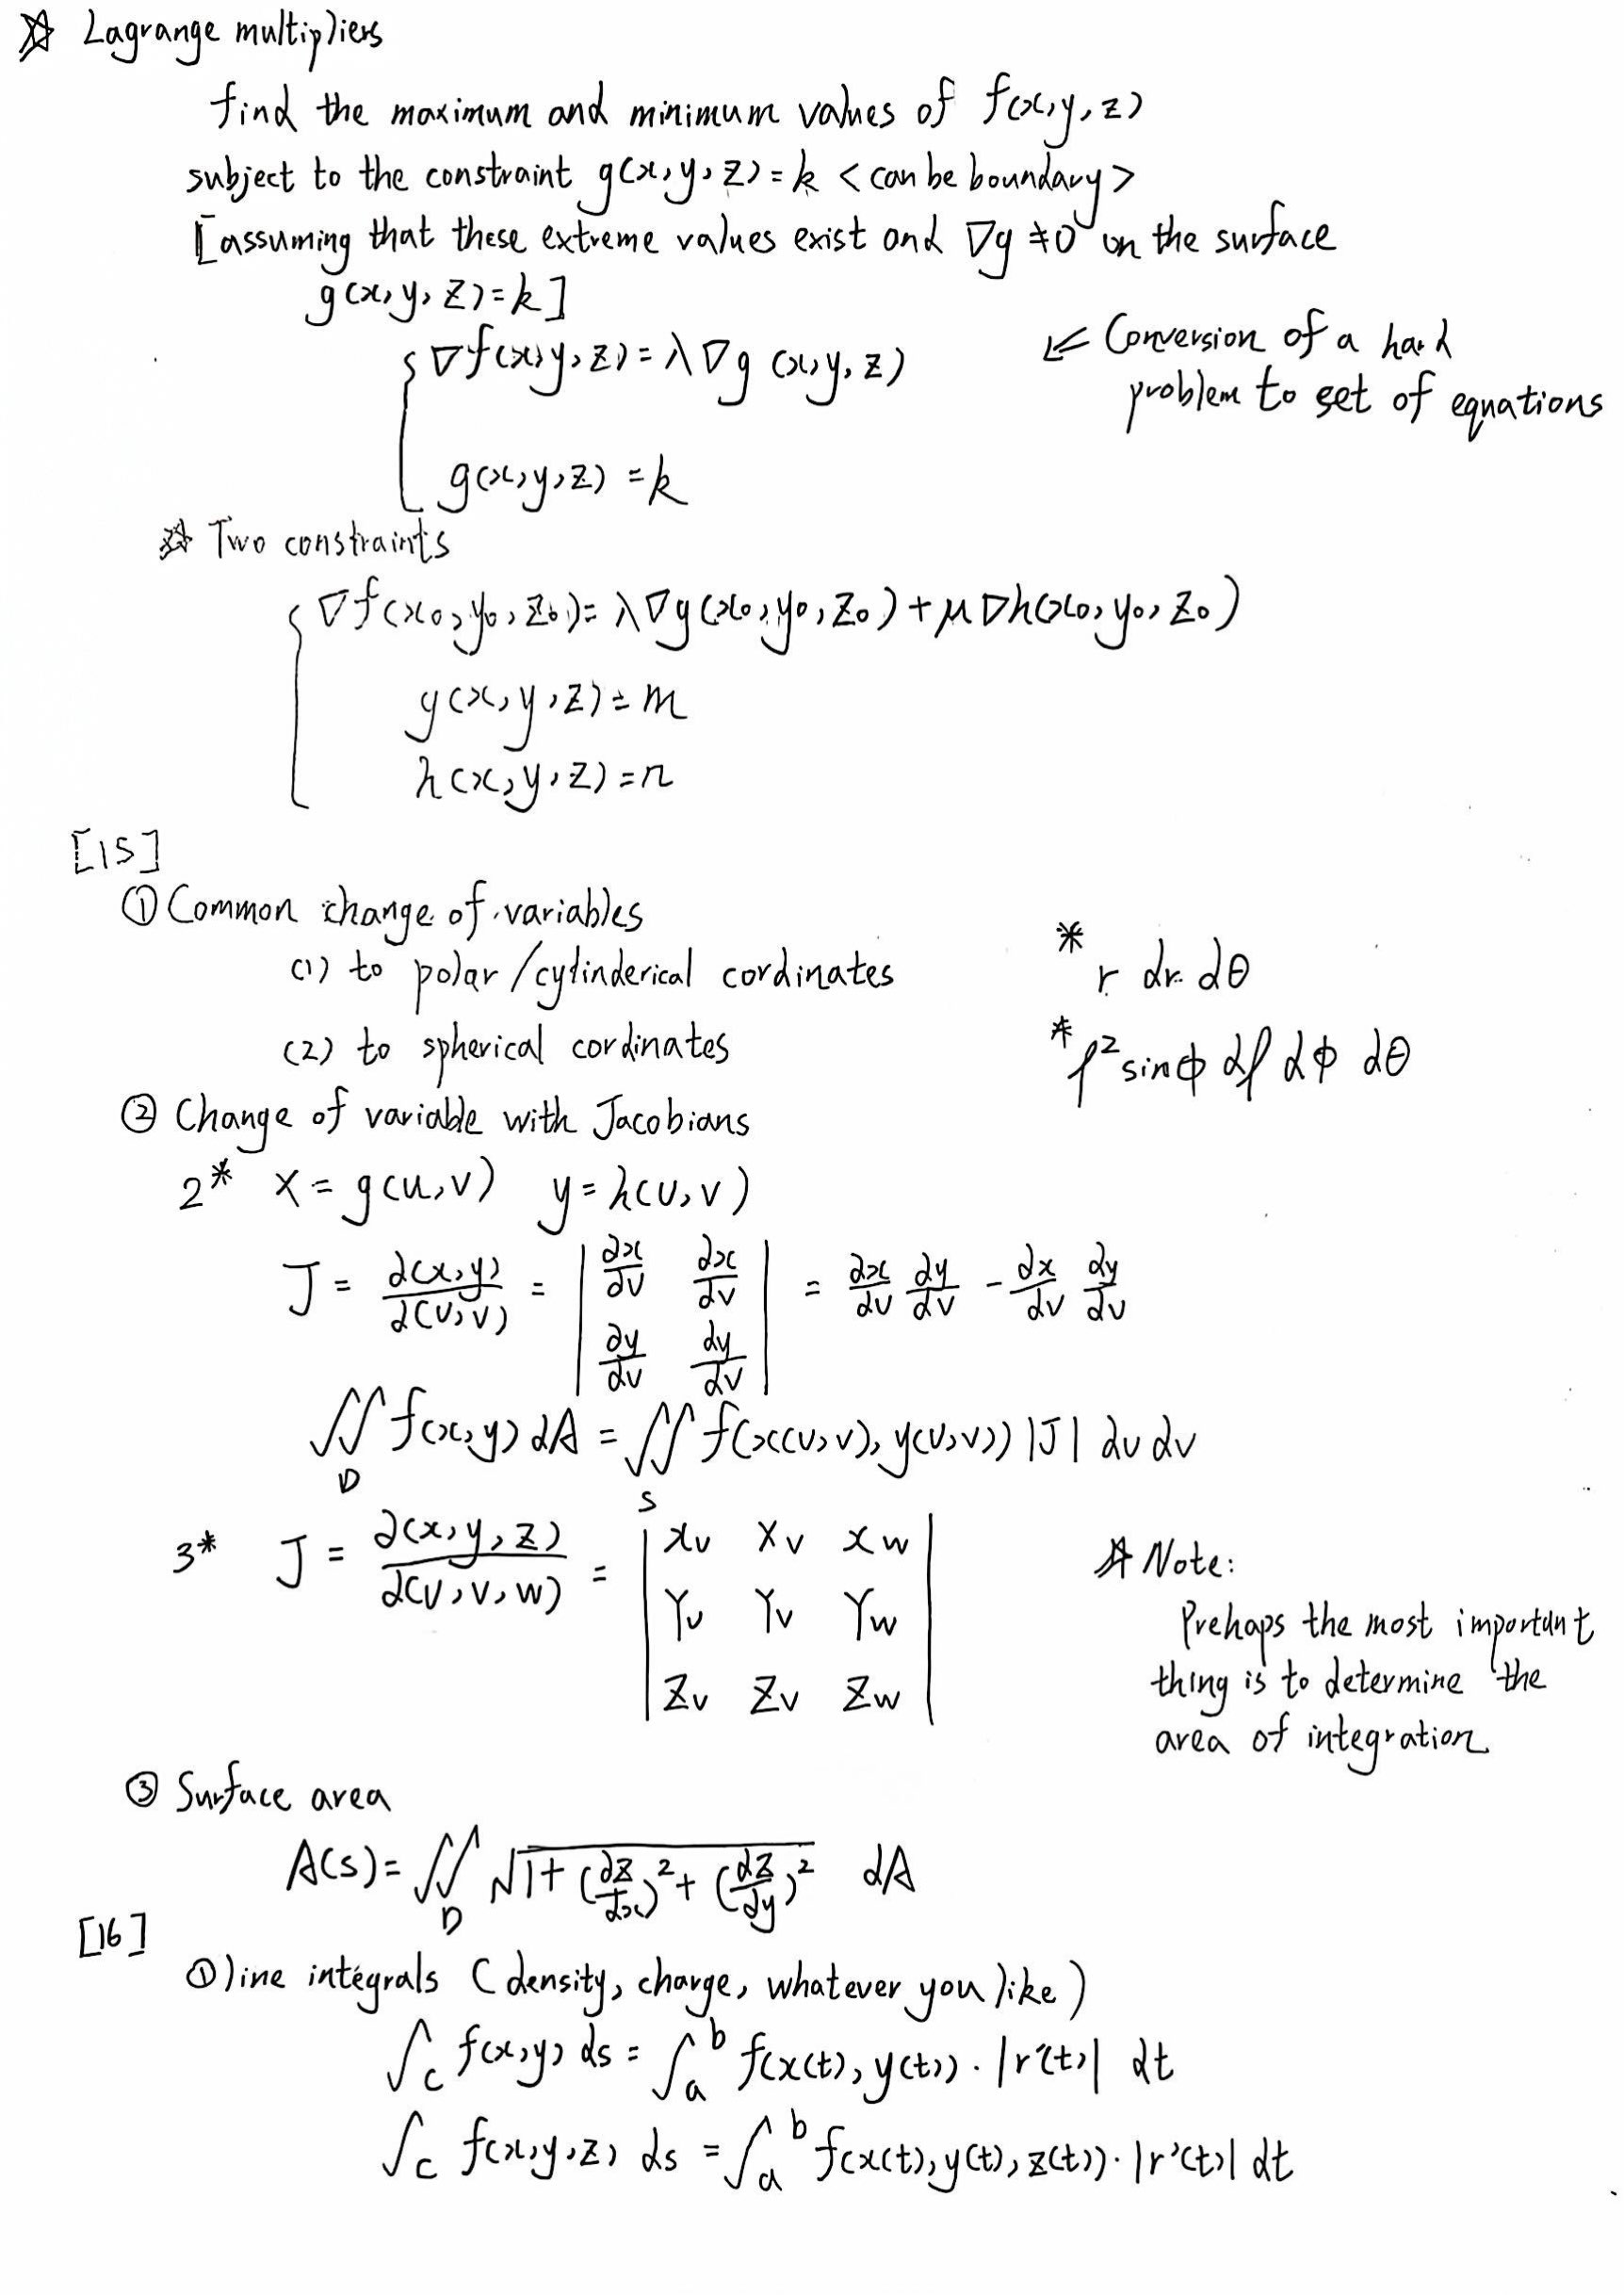 ☆ Lagrange multipliers
find the maximum and minimum values of f(x,y,z)
subject to the constraint g(x,y,z)=k <can be boundary>
[assuming that these extreme values exist and ∇g≠0 on the surface
g(x,y,z)=k]
{ ∇f(x,y,z)=λ∇g(x,y,z)
g(x,y,z)=k
⇐ Conversion of a hard
problem to set of equations
☆ Two constraints
{ ∇f(x₀,y₀,z₀)=λ∇g(x₀,y₀,z₀)+μ∇h(x₀,y₀,z₀)
g(x,y,z)=m
h(x,y,z)=n
[15]
① Common change of variables
(1) to polar/cylinderical cordinates * r dr dθ
(2) to spherical cordinates * ρ² sinφ dρ dφ dθ
② Change of variable with Jacobians
2* x=g(u,v) y=h(u,v)
J = ∂(x,y)/∂(u,v) = | ∂x/∂u ∂x/∂v | = ∂x/∂u ∂y/∂v - ∂x/∂v ∂y/∂u
| ∂y/∂u ∂y/∂v |
∬_D f(x,y) dA = ∬_S f(x(u,v), y(u,v)) |J| du dv
3* J = ∂(x,y,z)/∂(u,v,w) = | xu xv xw |
| Yu Yv Yw |
| Zu Zv Zw |
☆ Note:
Prehaps the most important
thing is to determine the
area of integration
③ Surface area
A(s)= ∬_D √(1+(∂z/∂x)²+(∂z/∂y)²) dA
[16]
① line integrals (density, charge, whatever you like)
∫_C f(x,y) ds = ∫_a^b f(x(t), y(t)) · |r'(t)| dt
∫_C f(x,y,z) ds = ∫_a^b f(x(t), y(t), z(t)) · |r'(t)| dt